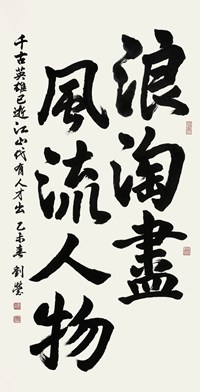 浪淘盡
風流人物
千古英雄已逝江山代有人才出乙未春劉瑩